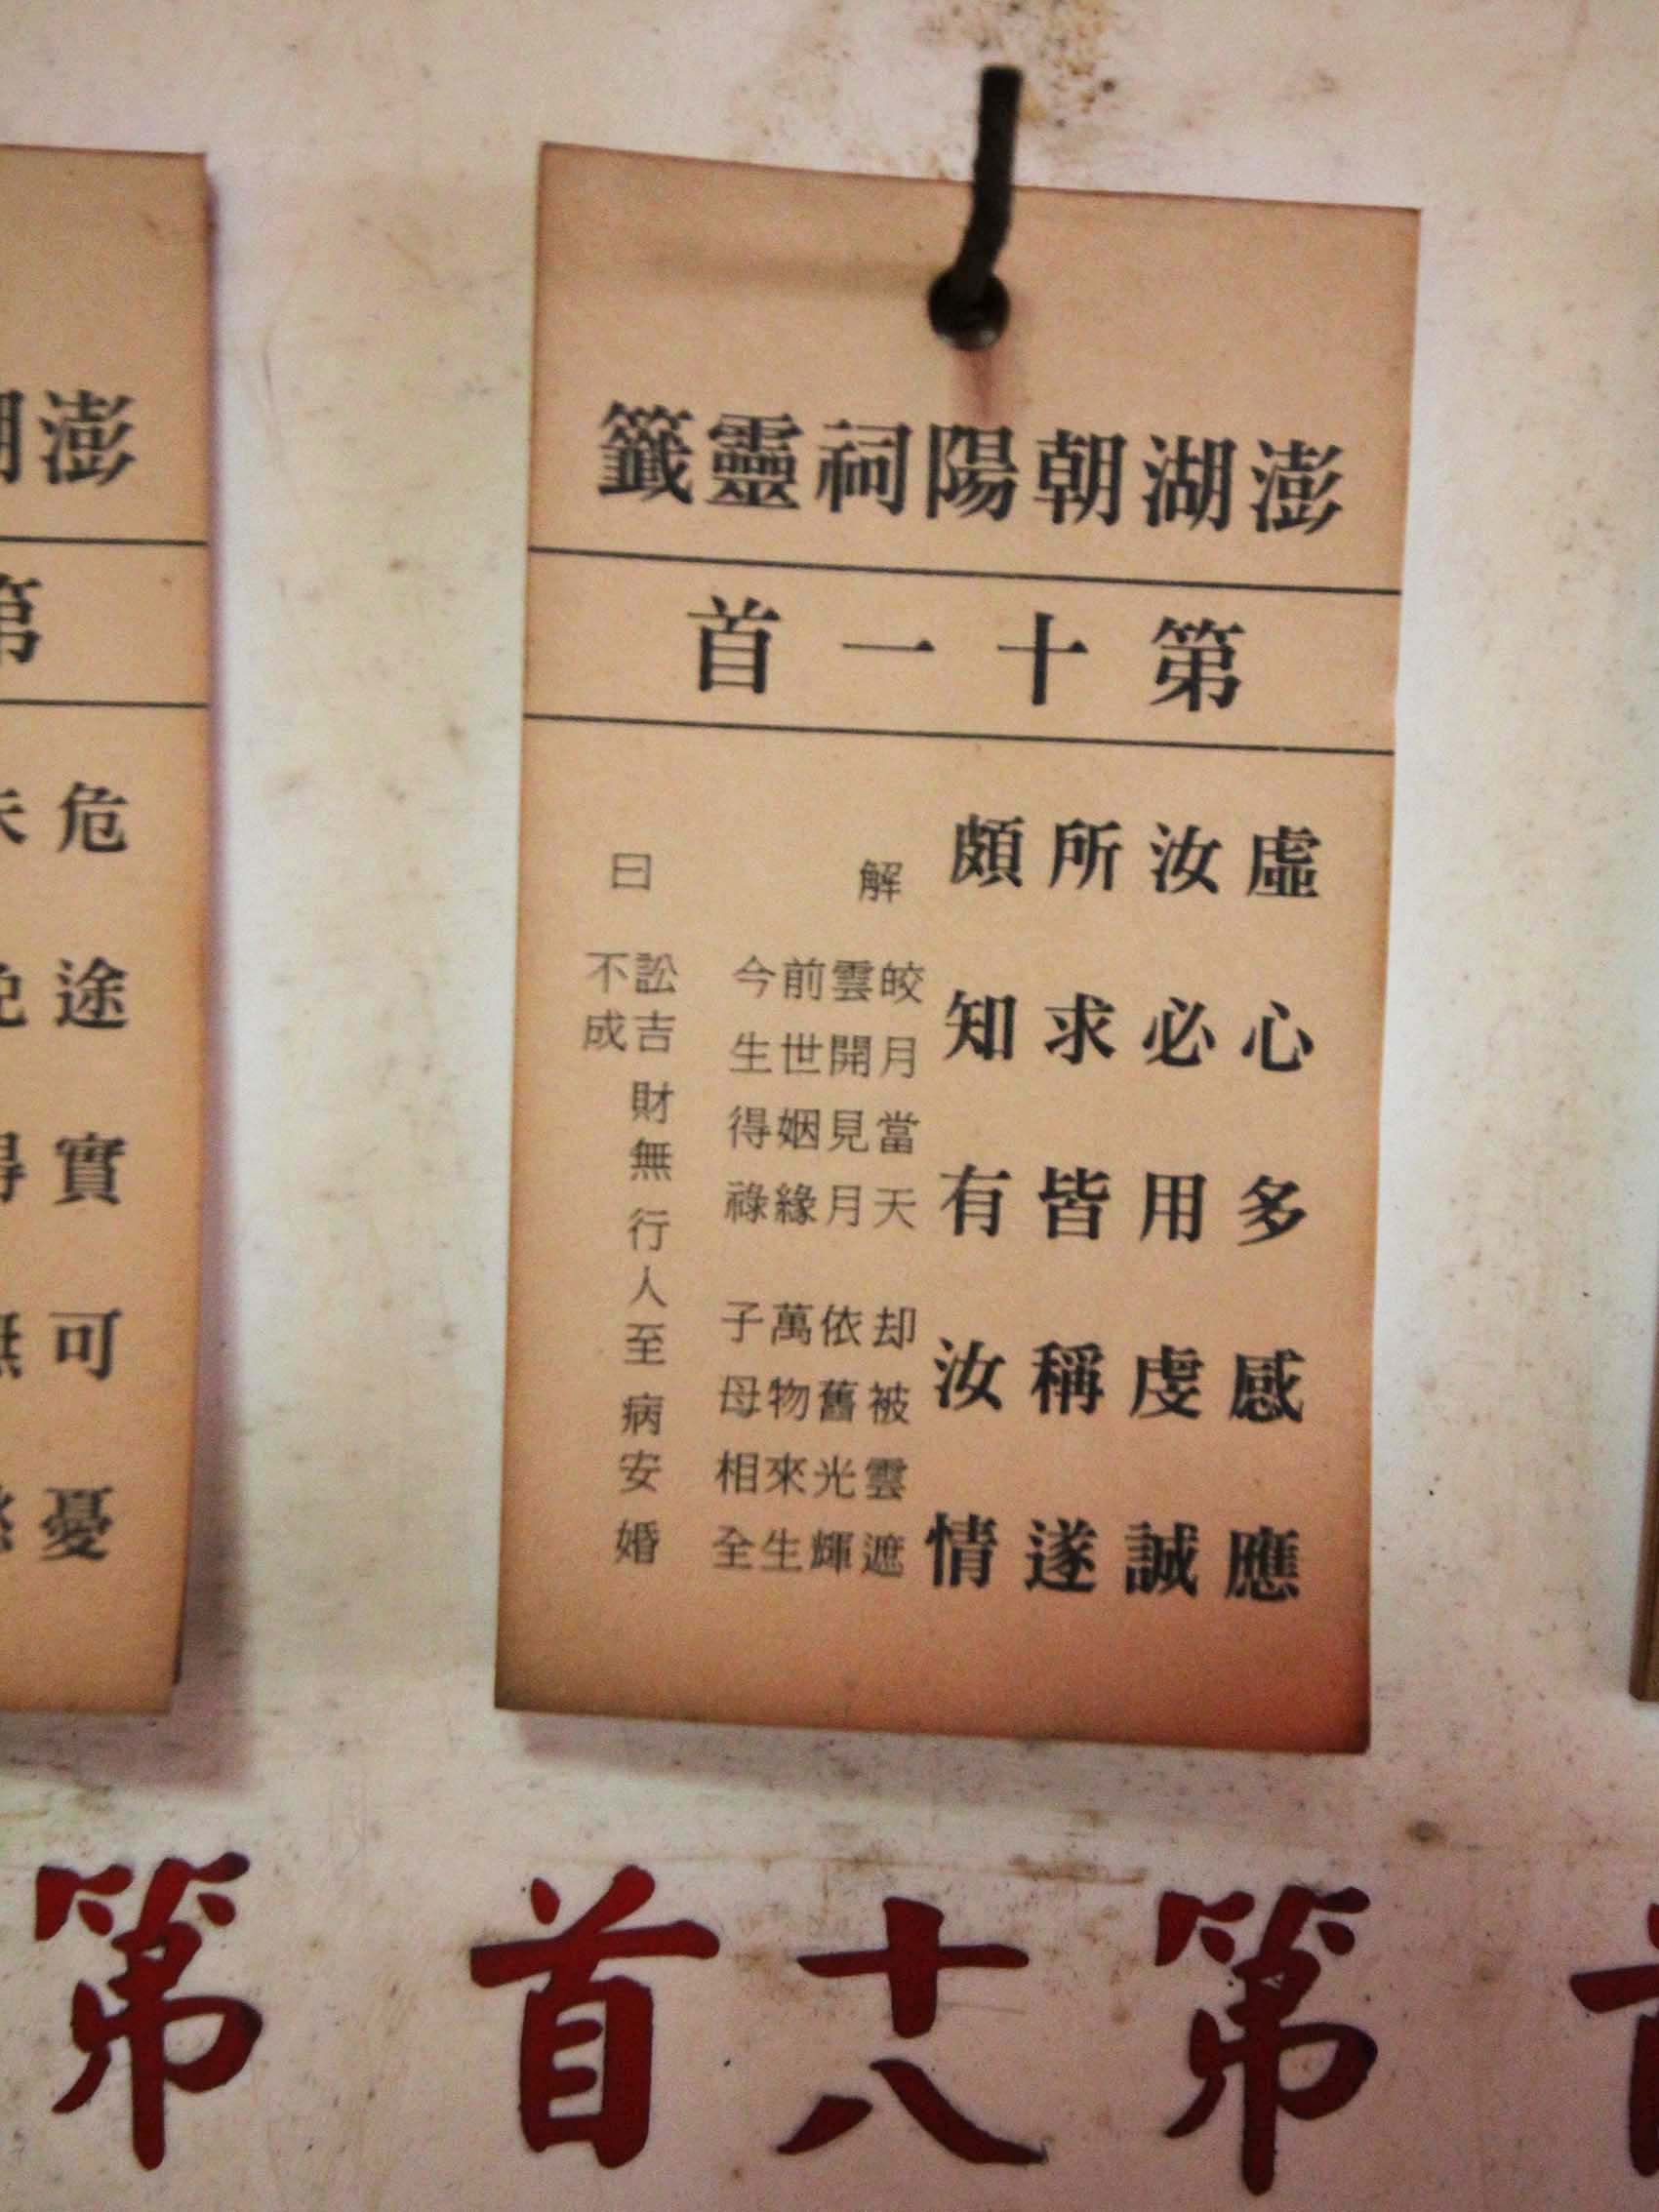 澎湖朝陽祠靈籤
第十一首
虛心多感應
汝必用虔誠
所求皆稱遂
頗知有汝情
解曰
皎月當天 却被雲遮
雲開見月 依舊光輝
前世姻緣 萬物來生
今生得祿 子母相全
訟吉 財無 行人至 病安 婚
不成
第十八首
澎湖
第
危途實可憂
第